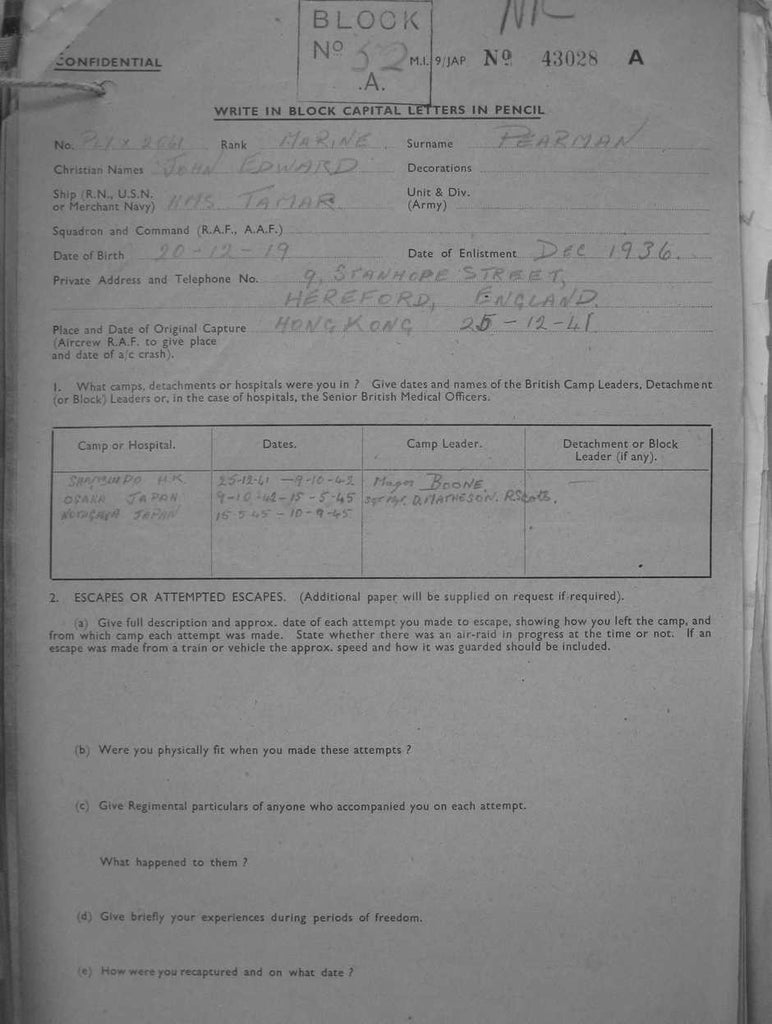 BLOCK
Nº 52
.A.
CONFIDENTIAL
M.I. 9/JAP Nº 43028 A
WRITE IN BLOCK CAPITAL LETTERS IN PENCIL
No. Rank MARINE Surname PEARMAN
Christian Names JOHN EDWARD Decorations
Ship (R.N., U.S.N. or Merchant Navy) HMS TAMAR Unit & Div. (Army)
Squadron and Command (R.A.F., A.A.F.)
Date of Birth 20-12-19 Date of Enlistment DEC 1936.
Private Address and Telephone No. 9, STANHOPE STREET,
HEREFORD, ENGLAND.
Place and Date of Original Capture HONG KONG 25-12-41
(Aircrew R.A.F. to give place
and date of a/c crash).
1. What camps, detachments or hospitals were you in ? Give dates and names of the British Camp Leaders, Detachment
(or Block) Leaders or, in the case of hospitals, the Senior British Medical Officers.
Camp or Hospital. Dates. Camp Leader. Detachment or Block Leader (if any).
H.K. 25-12-41 - 9-10-42 Major BOONE
OSAKA JAPAN 9-10-42 - 15-5-45 D. MATHESON. R.Scots.
JAPAN 15-5-45 - 10-9-45
2. ESCAPES OR ATTEMPTED ESCAPES. (Additional paper will be supplied on request if required).
(a) Give full description and approx. date of each attempt you made to escape, showing how you left the camp, and
from which camp each attempt was made. State whether there was an air-raid in progress at the time or not. If an
escape was made from a train or vehicle the approx. speed and how it was guarded should be included.
(b) Were you physically fit when you made these attempts ?
(c) Give Regimental particulars of anyone who accompanied you on each attempt.
What happened to them ?
(d) Give briefly your experiences during periods of freedom.
(e) How were you recaptured and on what date ?